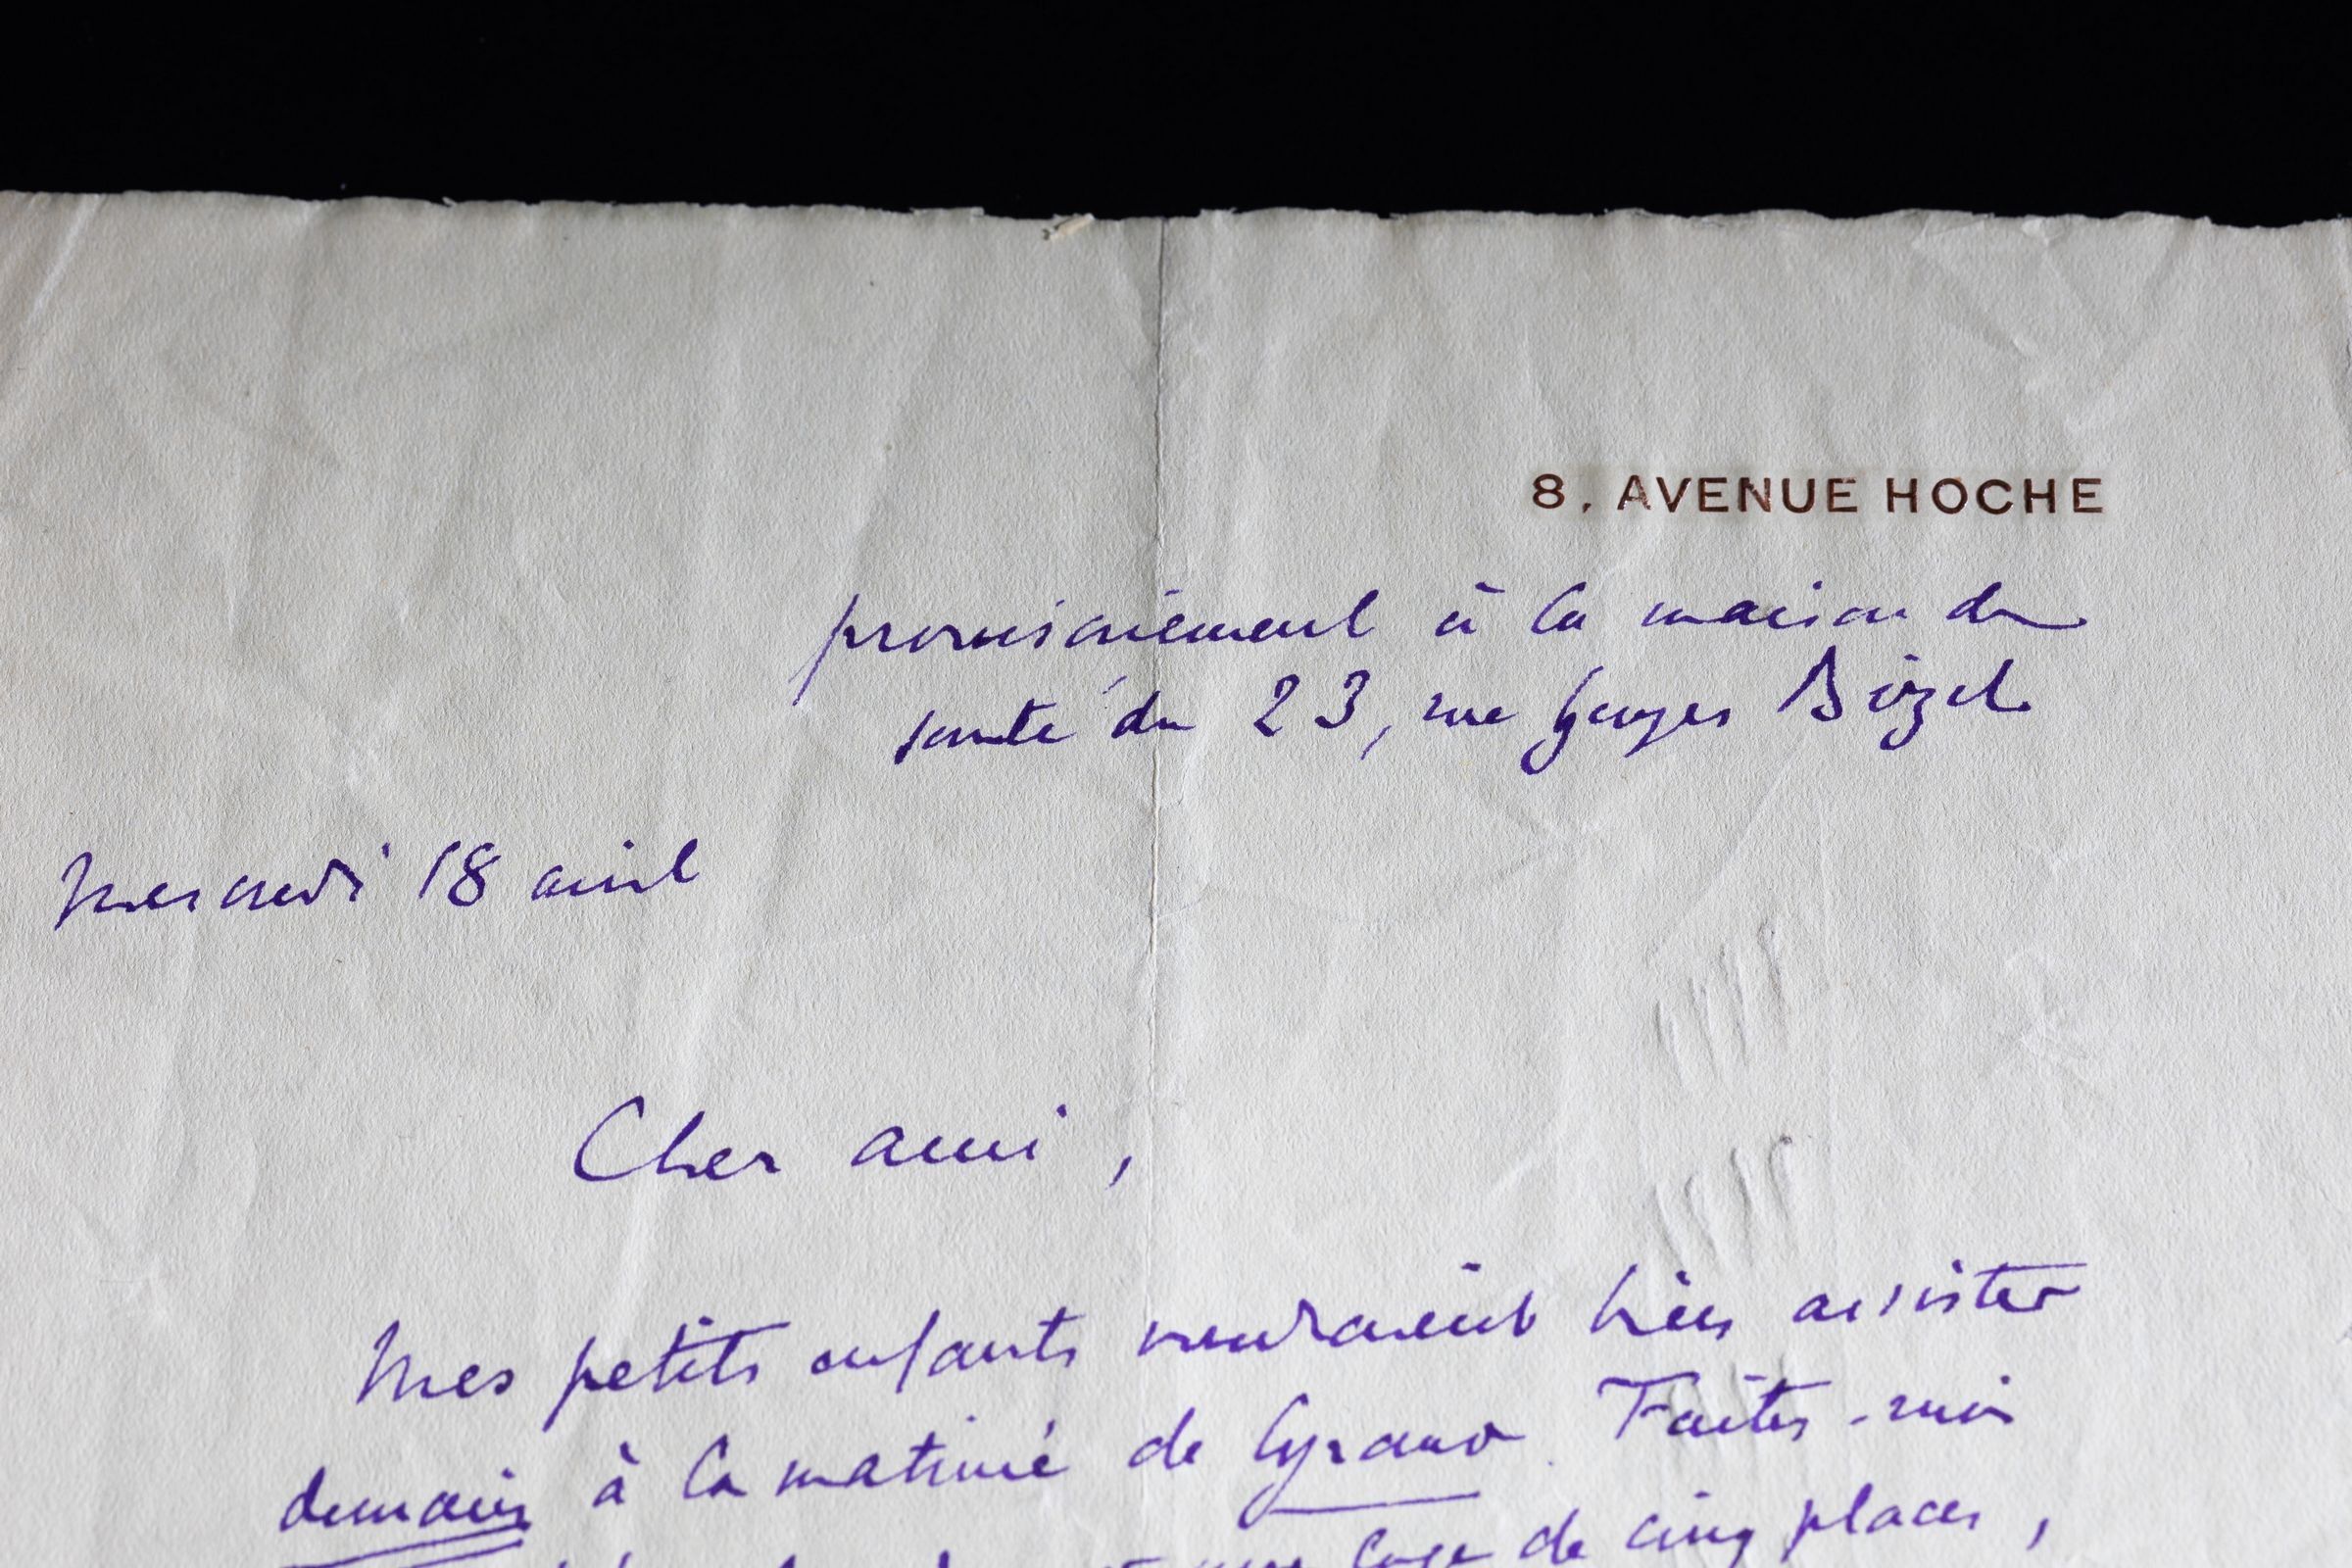 8, AVENUE HOCHE
provisoirement à la maison de
santé du 23, rue Georges Bizet
Mercredi 18 avril
Cher ami,
Mes petits enfants voudraient bien assister
demain à la matinée de Cyrano. Faites-moi
une loge de cinq places,